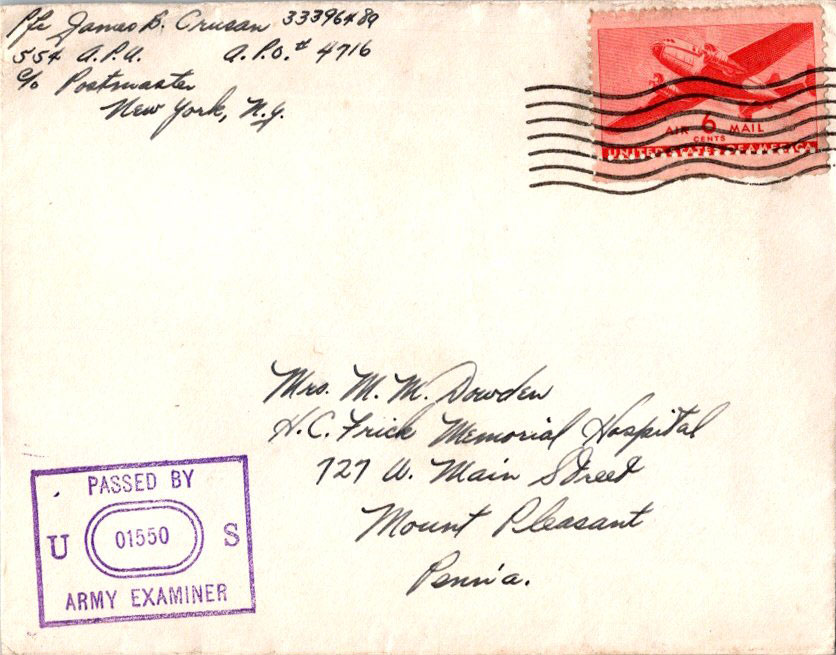 Pfc James B. Crusan 33396489
554 A.P.U. A.P.O.# 4716
c/o Postmaster
New York, N.Y.
AIR 6 MAIL
CENTS
UNITED STATES OF AMERICA
Mrs. M. M. Dowden
H.C. Frick Memorial Hospital
727 W. Main Street
Mount Pleasant
Penn'a.
PASSED BY
U 01550 S
ARMY EXAMINER